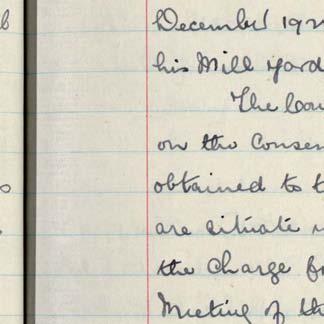 December 192
his Mill yard
The Cou
on the Consen
obtained to t
are situate
the Charge fr
Meeting of th